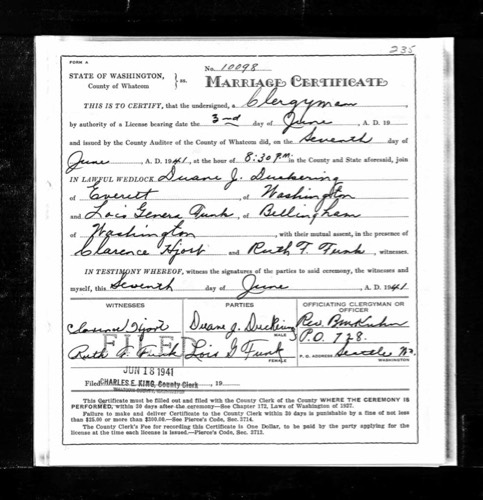 235
FORM A
No. 10098
STATE OF WASHINGTON,
County of Whatcom
ss.
MARRIAGE CERTIFICATE
THIS IS TO CERTIFY, that the undersigned, a Clergyman,
by authority of a License bearing date the 3rd day of June, A. D. 19
and issued by the County Auditor of the County of Whatcom did, on the Seventh day of
June, A. D. 1941, at the hour of 8:30 P.M. in the County and State aforesaid, join
IN LAWFUL WEDLOCK Duane J. Duckering
of Everett, of Washington
and Lois Geneva Funk, of Bellingham
of Washington, with their mutual assent, in the presence of
Clarence Hjort and Ruth F. Funk, witnesses.
IN TESTIMONY WHEREOF, witness the signatures of the parties to said ceremony, the witnesses and
myself, this Seventh day of June, A. D. 1941
WITNESSES
PARTIES
OFFICIATING CLERGYMAN OR OFFICER
Clarence Hjort
Duane J. Duckering
MALE
Rev.
P.O. 728
FILED
Ruth F. Funk
Lois G Funk
FEMALE
P. O. ADDRESS Seattle Wn.
WASHINGTON
JUN 18 1941
Filed CHARLES E. KING, County Clerk 19
WHATCOM COUNTY, WASHINGTON
This Certificate must be filled out and filed with the County Clerk of the County WHERE THE CEREMONY IS
PERFORMED, within 30 days after the ceremony—See Chapter 172, Laws of Washington of 1927.
Failure to make and deliver Certificate to the County Clerk within 30 days is punishable by a fine of not less
than $25.00 or more than $300.00—See Pierce's Code, Sec. 3714.
The County Clerk's Fee for recording this Certificate is One Dollar, to be paid by the party applying for
the license at the time each license is issued.—Pierce's Code, Sec. 3713.